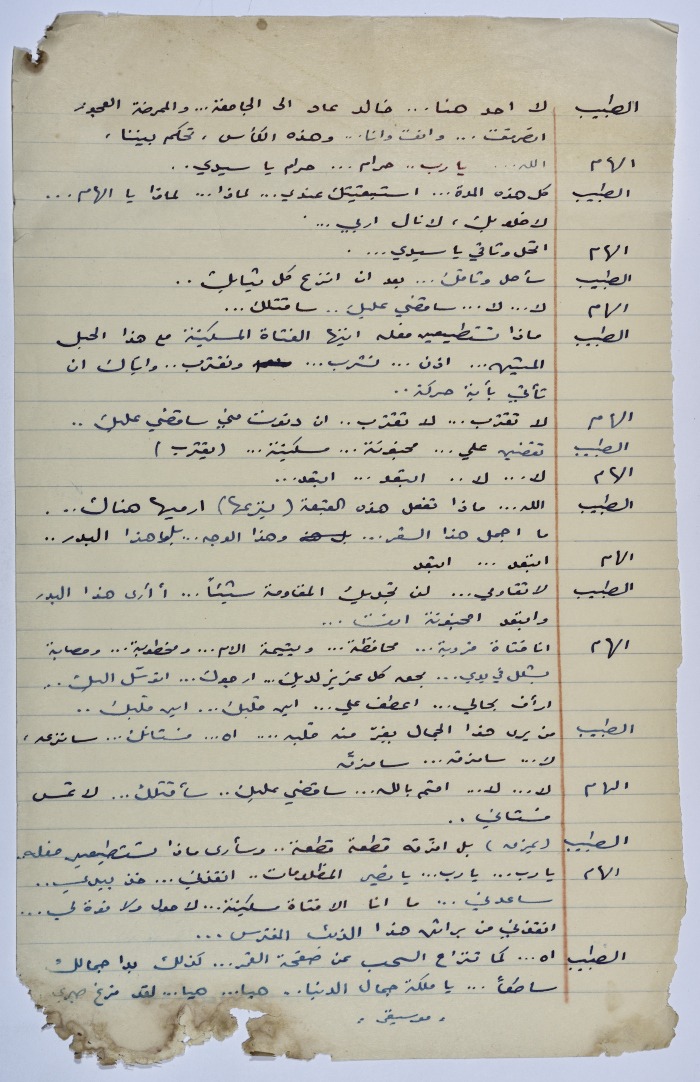 الطبيب لا احد هنا... خالد عاد الى الجامعة... والممرضة العجوز
انصرفت... وانت وانا... وهذه الكأس، تحكم بيننا،
الهام الله... يا رب.. حرام... حرام يا سيدي..
الطبيب كل هذه المدة... استبقيتك عندي... لماذا... لماذا يا الهام...
لاخلو بك، لانال اربي...
الهام انحل وثاقي يا سيدي...
الطبيب سأحل وثاقك... بعد ان انزع كل ثيابك..
الهام لا... لا... سأقضي عليك.. سأقتلك...
الطبيب ماذا تستطيعين فعله ايتها الفتاة المسكينة مع هذا الحبل
المتين... اذن... نشرب... ونقترب.. واياك ان
تأتي بأية حركة..
الهام لا تقترب... لا تقترب.. ان دنوت مني سأقضي عليك..
الطبيب تقضين علي... مجنونة... مسكينة... (يقترب)
الهام لا... لا.. ابتعد... ابتعد...
الطبيب الله... ماذا تفعل هذه القبعة (ينزعها) ارميها هناك...
ما اجمل هذا الشعر... وهذا الوجه... بل هذا البدر..
الهام ابتعد... ابتعد
الطبيب لا تقاومي... لن تجديك المقاومة شيئاً... أ أرى هذا البدر
وابتعد امجنونة انت...
الهام انا فتاة قروية... محافظة... ويتيمة الام... ومخطوبة... ومصابة
بشلل في يدي... بحق كل عزيز لديك... ارجوك... اتوسل اليك..
ارأف بحالي... اعطف علي... اين قلبك... اين قلبك..
الطبيب من يرى هذا الجمال يفرّ منه قلبه.... اه... فستانك... سأنزعه،
لا... سأمزقه... سأمزقه
الهام لا... لا... اقسم بالله... سأقضي عليك.. سأقتلك... لا تمس
فستاني..
الطبيب (يمزقه) بل امزقه قطعة قطعة.. وسأرى ماذا تستطيعين فعله.
الهام يا رب... يا رب... يا نصير المظلومات.. انقذني... خذ بيدي..
ساعدني... ما انا الا فتاة مسكينة... لا حول ولا قوة لي...
انقذني من براثن هذا الذئب المفترس...
الطبيب اه... كما تنزاح السحب عن صفحة القمر... كذلك بدا جمالك
ساطعاً... يا ملكة جمال الدنيا.. هيا... هيا... لقد فرغ صبري
، موسيقى،